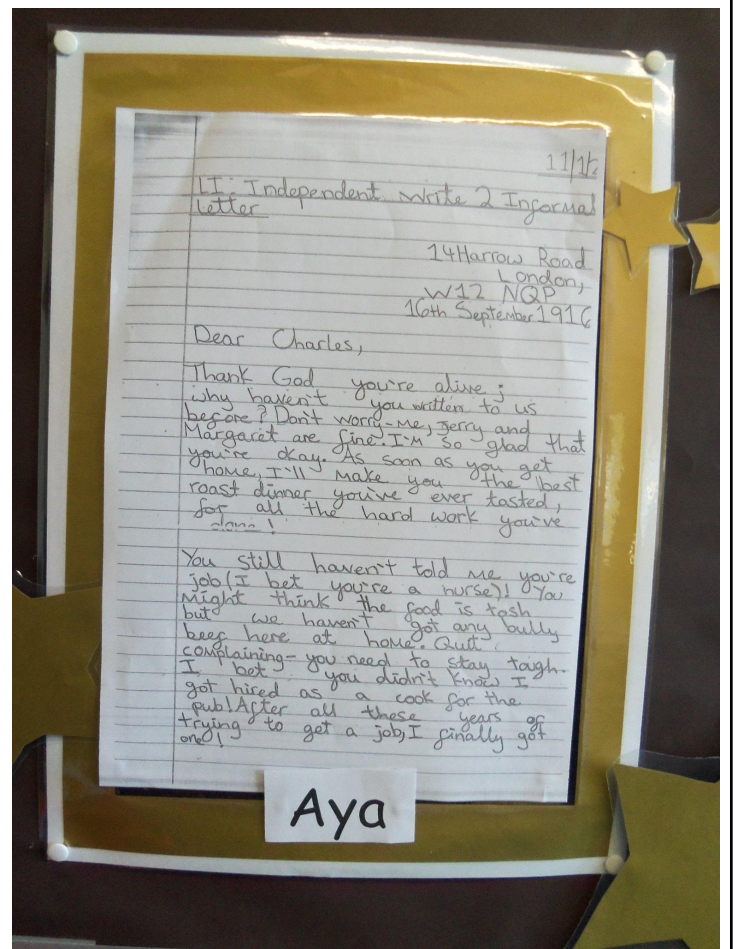 11/1/2
LI: Independent Write 2 Informal
Letter
14 Harrow Road
London,
W12 NQP
16th September 1916
Dear Charles,
Thank God you're alive;
why haven't you written to us
before? Don't worry-me, Jerry and
Margaret are fine. I'm so glad that
you're okay. As soon as you get
home, I'll make you the best
roast dinner you've ever tasted,
for all the hard work you've
done!
You still haven't told me you're
job (I bet you're a nurse)! You
might think the food is tosh
but we haven't got any bully
beef here at home. Quit
complaining- you need to stay tough.
I bet you didn't know I
got hired as a cook for the
pub! After all these years of
trying to get a job, I finally got
one!
Aya